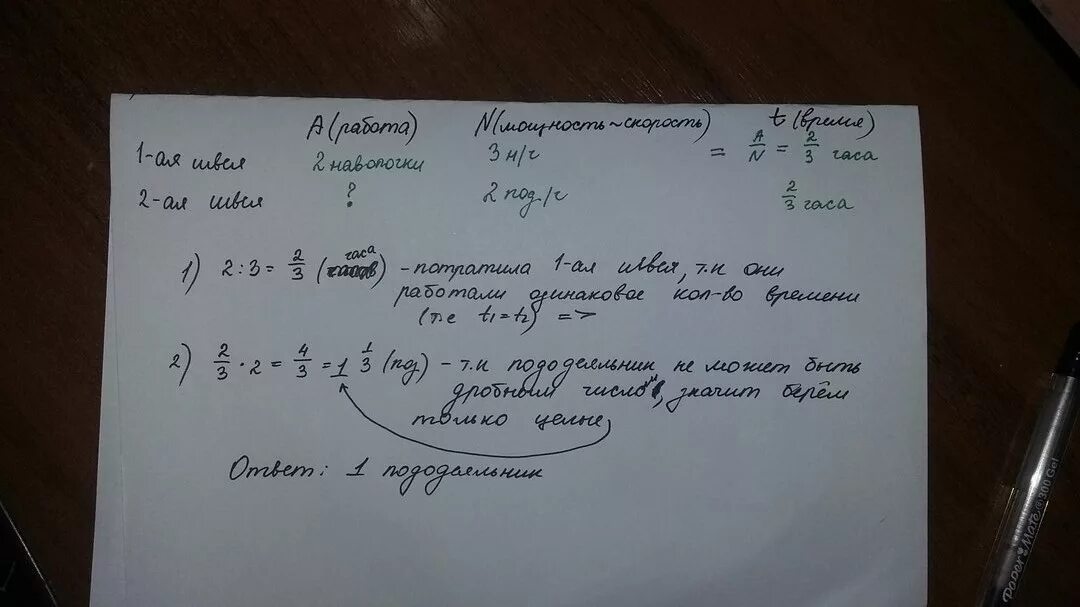 A (работа) N (мощность ~ скорость) t (время)
1-ая швея 2 наволочки 3 н/ч = A/N = 2/3 часа
2-ая швея ? 2 под./ч 2/3 часа
1) 2 : 3 = 2/3 (часа) - потратила 1-ая швея, т.к они
работали одинаковое кол-во времени
(т.е t₁ = t₂) =>
2) 2/3 · 2 = 4/3 = 1 1/3 (под) - т.к пододеяльник не может быть
дробным числом, значит берём
только целые
Ответ: 1 пододеяльник
Paper Mate 300 Gel